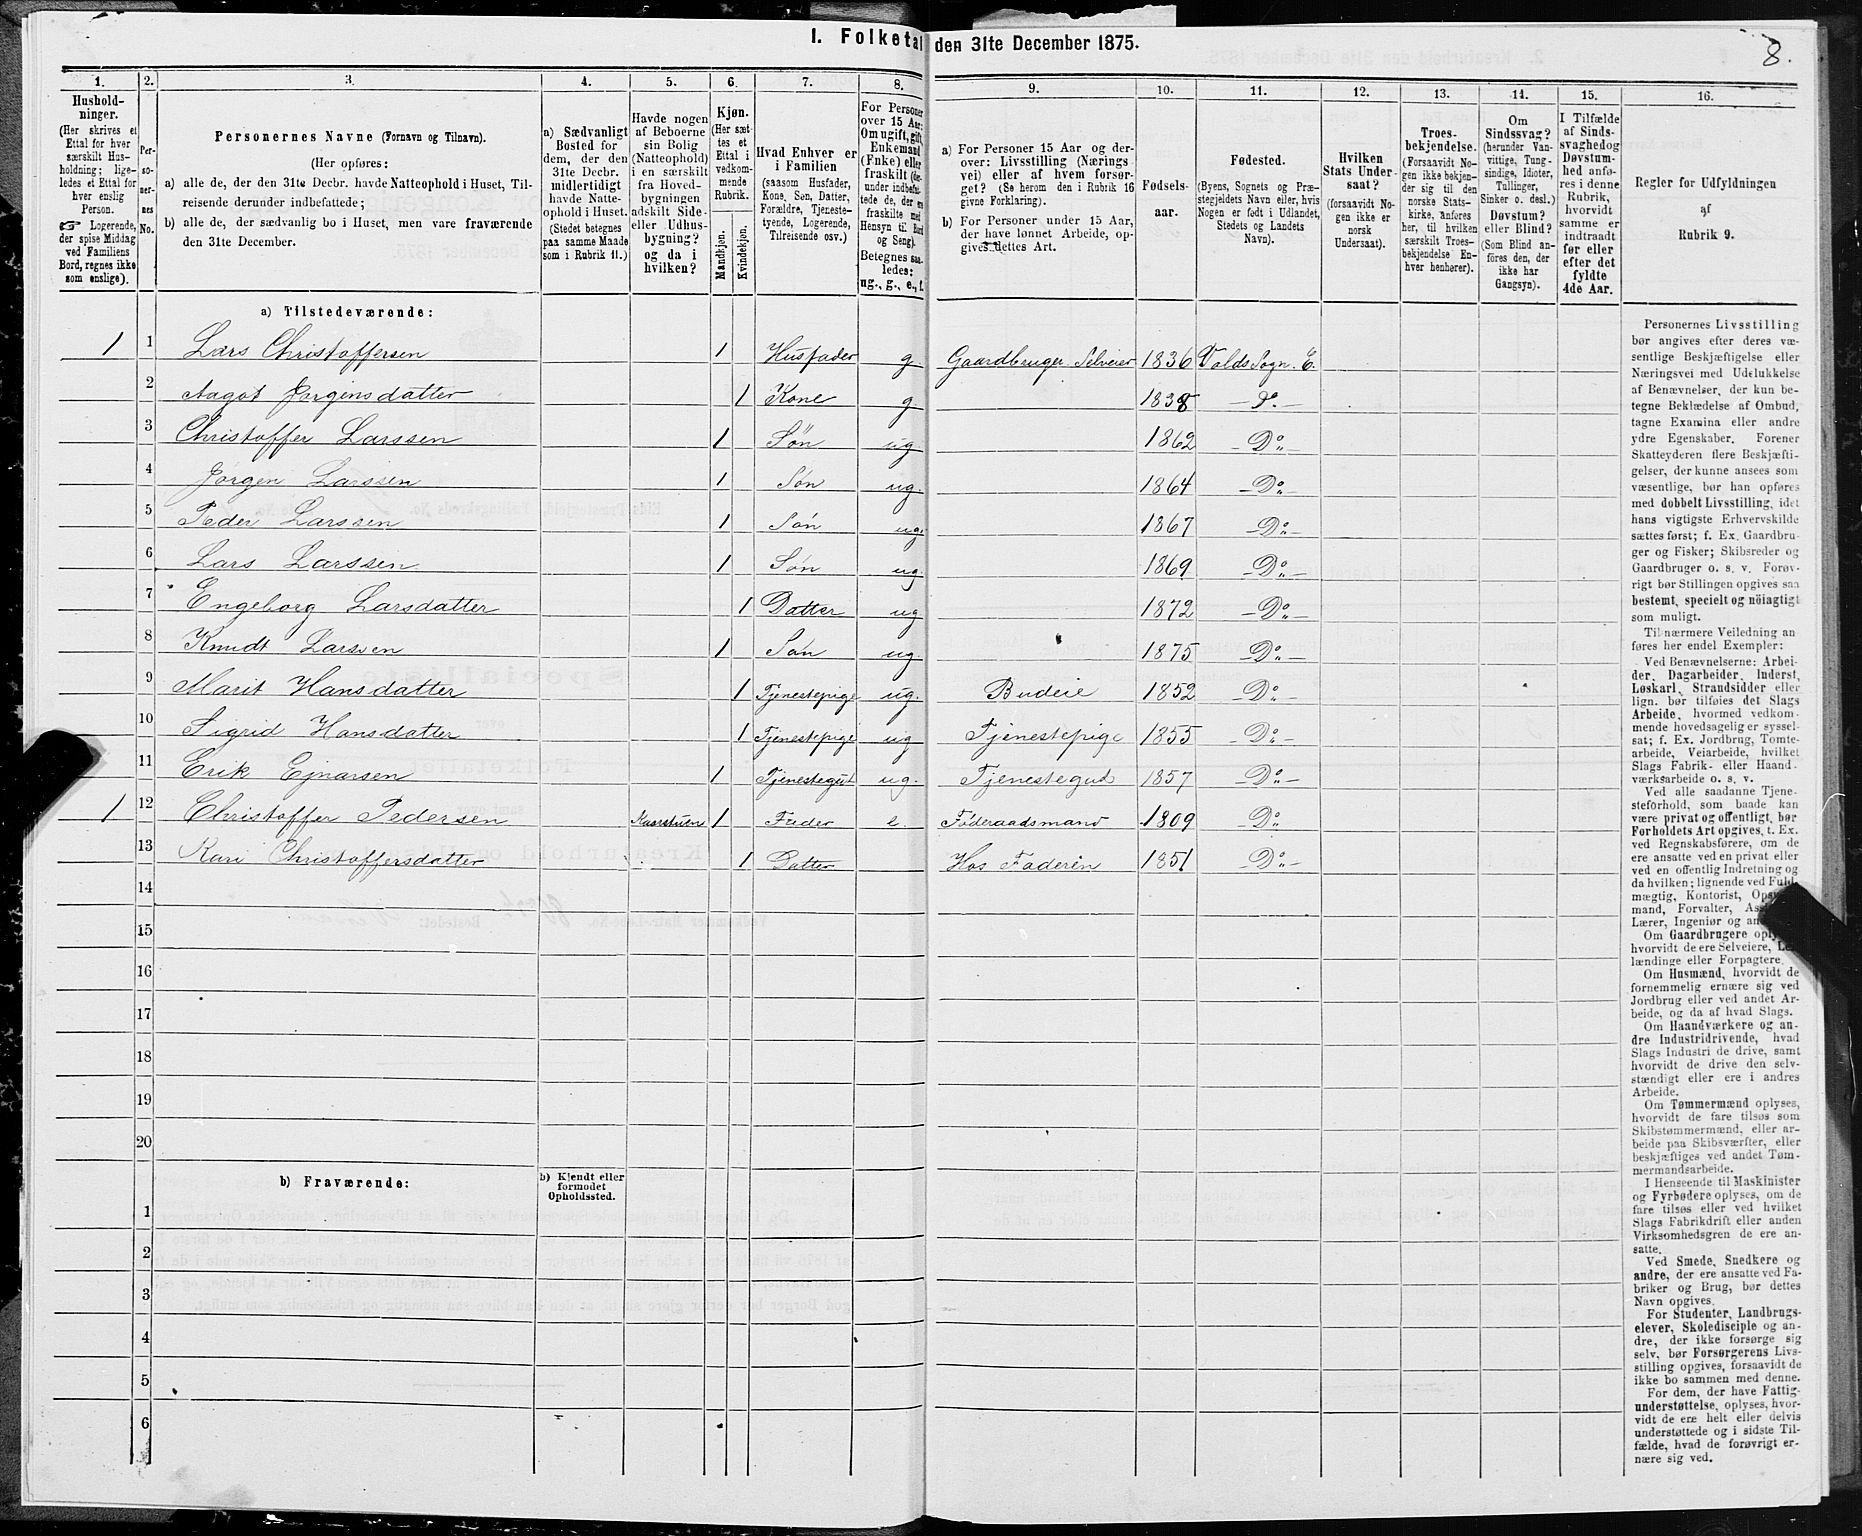 I. Folketal den 31te December 1875.
8.
1. 2. 3. 4. 5. 6. 7. 8. 9. 10. 11. 12. 13. 14. 15. 16.
Husholdninger.
(Her skrives et
Ettal for hver
særskilt Husholdning; ligeledes et Ettal for
hver enslig
Person.
☞ Logerende,
der spise Middag
ved Familiens
Bord, regnes ikke
som enslige).
Personernes No.
Personernes Navne (Fornavn og Tilnavn).
(Her opføres:
a) alle de, der den 31te Decbr. havde Natteophold i Huset, Tilreisende derunder indbefattede;
b) alle de, der sædvanlig bo i Huset, men vare fraværende
den 31te December.
a) Sædvanligt
Bosted for
dem, der den
31te Decbr.
midlertidigt
havde Natteophold i Huset.
(Stedet betegnes
paa samme Maade
som i Rubrik 11.)
Havde nogen
af Beboerne
sin Bolig
(Natteophold)
i en særskilt
fra Hovedbygningen
adskilt Side-
eller Udhusbygning?
og da i
hvilken?
Kjøn.
(Her sættes et
Ettal i
vedkommende
Rubrik.
Mandkjøn.
Kvindekjøn.
Hvad Enhver er
i Familien
(saasom Husfader,
Kone, Søn, Datter,
Forældre, Tjenestetyende, Logerende,
Tilreisende osv.)
For Personer
over 15 Aar:
Om ugift, gift,
Enkemand
(Enke) eller
fraskilt
Betegnes saaledes:
ug., g., e., f.
a) For Personer 15 Aar og derover: Livsstilling (Næringsvei) eller af hvem forsørget? (Se herom den i Rubrik 16
givne Forklaring).
b) For Personer under 15 Aar,
der have lønnet Arbeide, opgives dettes Art.
Fødselsaar.
Fødested.
(Byens, Sognets og Præstegjeldets Navn eller, hvis
Nogen er født i Udlandet,
Stedets og Landets
Navn).
Hvilken
Stats Undersaat?
(forsaavidt Nogen ikke er
norsk
Undersaat).
Troesbekjendelse.
(Forsaavidt Nogen ikke bekjender sig til den
norske Statskirke, anføres
her, til hvilken
særskilt Troesbekjendelse Enhver henhører).
Om
Sindssvag?
(herunder Vanvittige, Tungsindige, Idioter,
Tullinger,
Sinker o. desl.)
Døvstum?
eller Blind?
(Som Blind anføres den, der
ikke har
Gangsyn).
I Tilfælde
af Sindssvaghed og
Døvstumhed anføres i denne
Rubrik,
hvorvidt
samme er
indtraadt
før eller
efter det
fyldte
4de Aar.
Regler for Udfyldningen
af
Rubrik 9.
a) Tilstedeværende:
1 1 Lars Christoffersen 1 Husfader g. Gaardbruger Selveier 1836 Volds Sogn. E.
2 Aagot Jørgensdatter 1 Kone g. 1838 — Do. —
3 Christoffer Larssen 1 Søn ug 1862 — Do —
4 Jørgen Larssen 1 Søn ug. 1864 — Do —
5 Peder Larssen 1 Søn ug. 1867 — Do —
6 Lars Larssen 1 Søn ug. 1869 — Do —
7 Engeborg Larsdatter 1 Datter ug 1872 — Do —
8 Knudt Larssen 1 Søn ug. 1875 — Do —
9 Marit Hansdatter 1 Tjenestepige ug. Budeie 1852 — Do —
10 Sigrid Hansdatter 1 Tjenestepige ug Tjenestepige 1855 — Do —
11 Erik Ejnarsen 1 Tjenestegut ug. Tjenestegud 1857 — Do —
1 12 Christoffer Pedersen 1 Fader e. Føderaadsmand 1809 — Do
13 Kari Christoffersdatter 1 Datter Hos Faderen 1851 — Do —
14
15
16
17
18
19
20
b) Fraværende:
b) Kjendt eller
formodet
Opholdssted.
1
2
3
4
5
6
Personernes Livsstilling
bør angives efter deres væsentlige Beskjæftigelse eller
Næringsvei med Udelukkelse
af Benævnelser, der kun betegne Beklædelse af Ombud,
tagne Examina eller andre
ydre Egenskaber. Forener
Skatteyderen flere Beskjæftigelser, der kunne ansees som
væsentlige, bør han opføres
med dobbelt Livsstilling, idet
hans vigtigste Erhvervskilde
sættes først; f. Ex. Gaardbruger og Fisker; Skibsreder og
Gaardbruger o. s. v. Forøvrigt bør Stillingen opgives saa
bestemt, specielt og nöiagtigt
som muligt.
Til nærmere Veiledning anføres her endel Exempler:
Ved Benævnelserne: Arbeider, Dagarbeider, Inderst,
Løskarl, Strandsidder eller
lign. bør tilføies det Slags
Arbeide, hvormed vedkommende hovedsagelig er sysselsat; f. Ex. Jordbrug, Tomtearbeide, Veiarbeide, hvilket
Slags Fabrik- eller Haandværksarbeide o. s. v.
Ved alle saadanne Tjenesteforhold, som baade kan
være privat og offentligt, bør
Forholdets Art opgives, t. Ex.
ved Regnskabsførere, om de
ere ansatte ved en privat eller
ved en offentlig Indretning og
da hvilken; lignende ved Fuldmægtig, Kontorist,
Om Gaardbrugere
hvorvidt de ere Selveiere,
lændinge eller Forpagtere.
Om Husmænd, hvorvidt de
fornemmelig ernære sig ved
Jordbrug eller ved andet Arbeide, og da af hvad Slags.
Om Haandværkere og andre Industridrivende, hvad
Slags Industri de drive, samt
hvorvidt de drive den selvstændigt eller ere i andres
Arbeide.
Om Tømmermænd oplyses,
hvorvidt de fare tilsøs som
Skibstømmermænd, eller arbeide paa Skibsværfter, eller
beskjæftiges ved andet Tømmermandsarbeide.
I Henseende til Maskinister
og Fyrbødere oplyses, om de
fare tilsøs eller ved hvilket
Slags Fabrikdrift eller anden
Virksomhedsgren de ere ansatte.
Ved Smede, Snedkere og
andre, der ere ansatte ved Fabriker og Brug, bør dettes
Navn opgives.
For Studenter, Landbrugselever, Skoledisciple og andre, der ikke forsørge sig
selv, bør Forsørgerens Livsstilling opgives, forsaavidt de
ikke bo sammen med denne.
For dem, der have Fattigunderstøttelse, oplyses, hvorvidt de ere helt eller delvis
understøttede og i sidste Tilfælde, hvad de forøvrigt ernære sig ved.